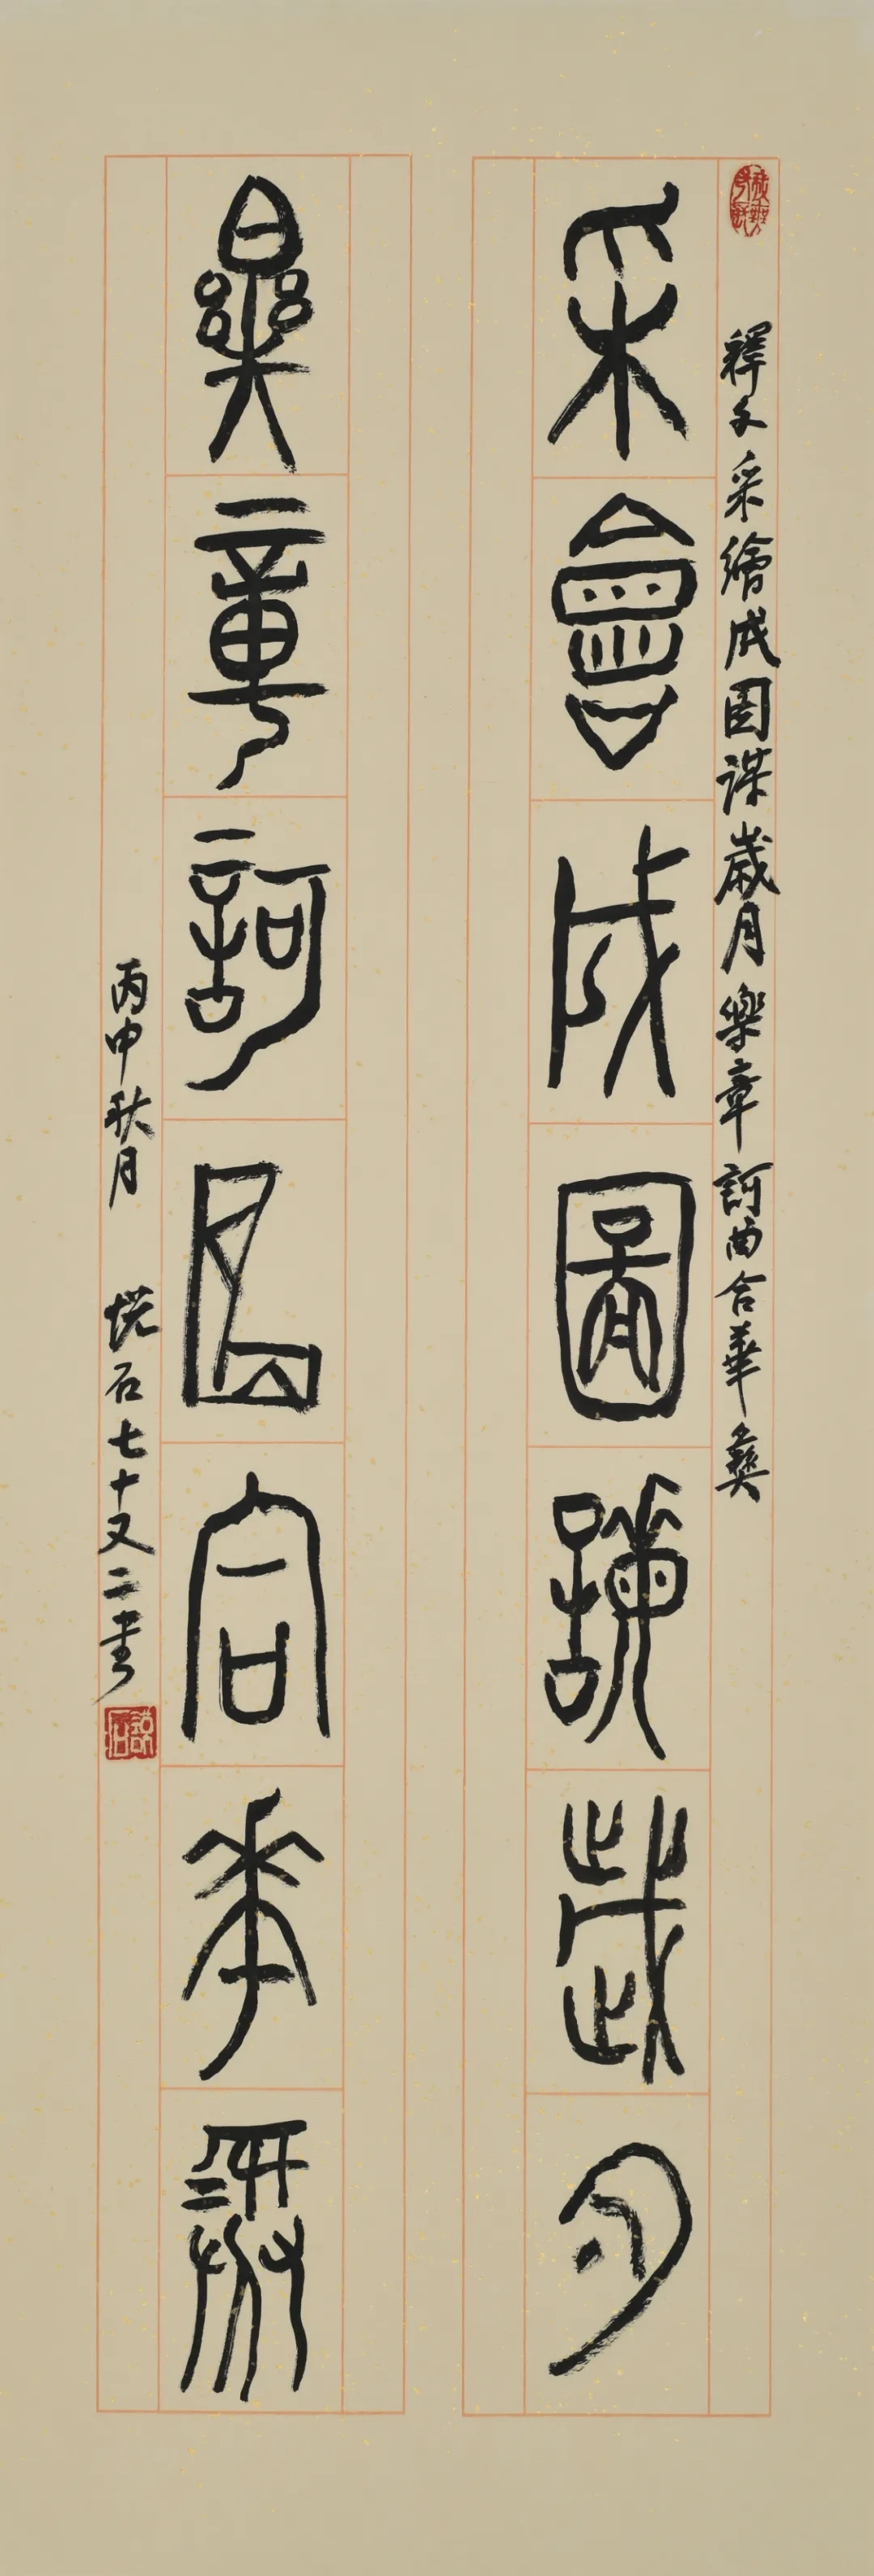 釋文采繪成图谋歲月樂章訶曲合華彝
采會成圖謀歲月
樂章訶曲合華彝
丙申秋月 悦石七十又二书